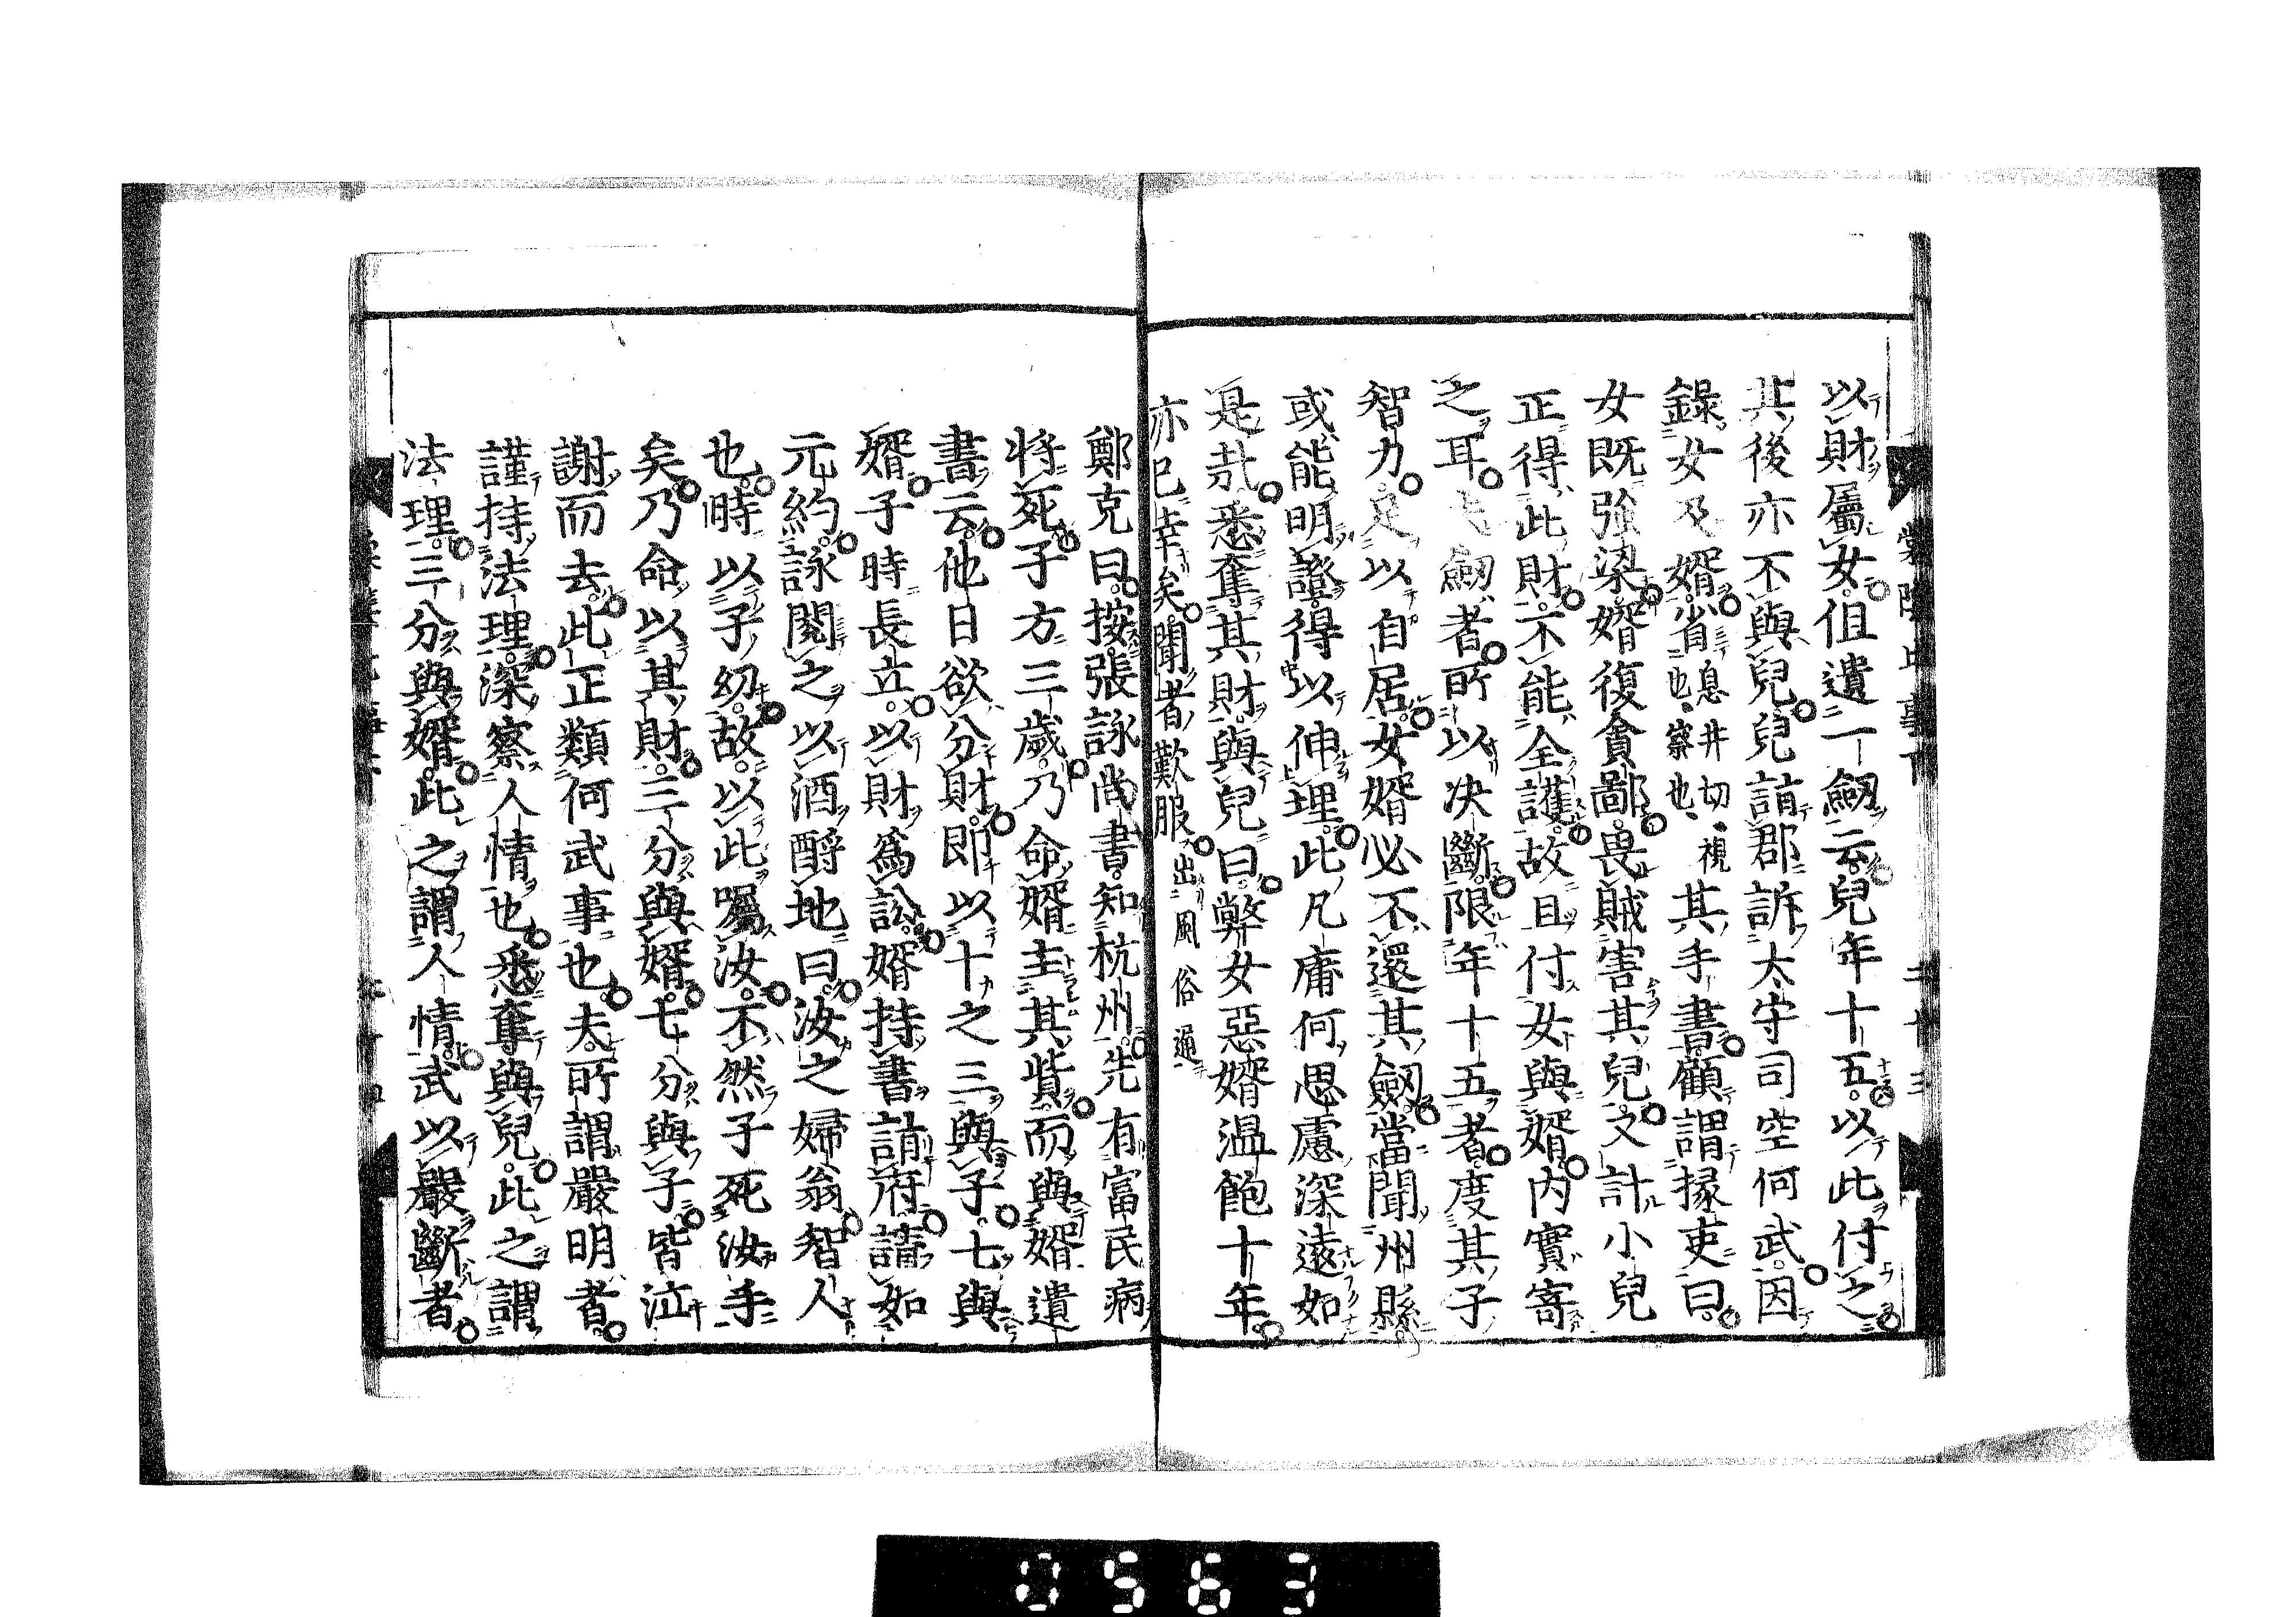 以財屬女但遺一劔云兒年十五以此付之
其後亦不與兒兒詣郡訴太守司空何武因
錄女及婿省息井切視也察也其手書顧謂掾吏曰
女既強梁婿復貪鄙畏賊害其兒又計小兒
正得此財不能全護故且付女與婿內實寄
之耳夫劔者所以决斷限年十五者度其子
智力足以自居女婿必不還其劔當聞州縣
或能明證得以伸理此凡庸何思慮深遠如
是哉悉奪其財與兒曰弊女惡婿温飽十年
亦已幸矣聞者歎服出風俗通
鄭克曰按張詠尚書知杭州先有富民病
將死子方三歲乃命婿主其貲而與婿遺
書云他日欲分財即以十之三與子七與
婿子時長立以財爲訟婿持書詣府請如
元約詠閱之以酒酹地曰汝之婦翁智人
也時以子幼故以此囑汝不然子死汝手
矣乃命以其財三分與婿七分與子皆泣
謝而去此正類何武事也夫所謂嚴明者
謹持法理深察人情也悉奪與兒此之謂
法理三分與婿此之謂人情武以嚴斷者
0563